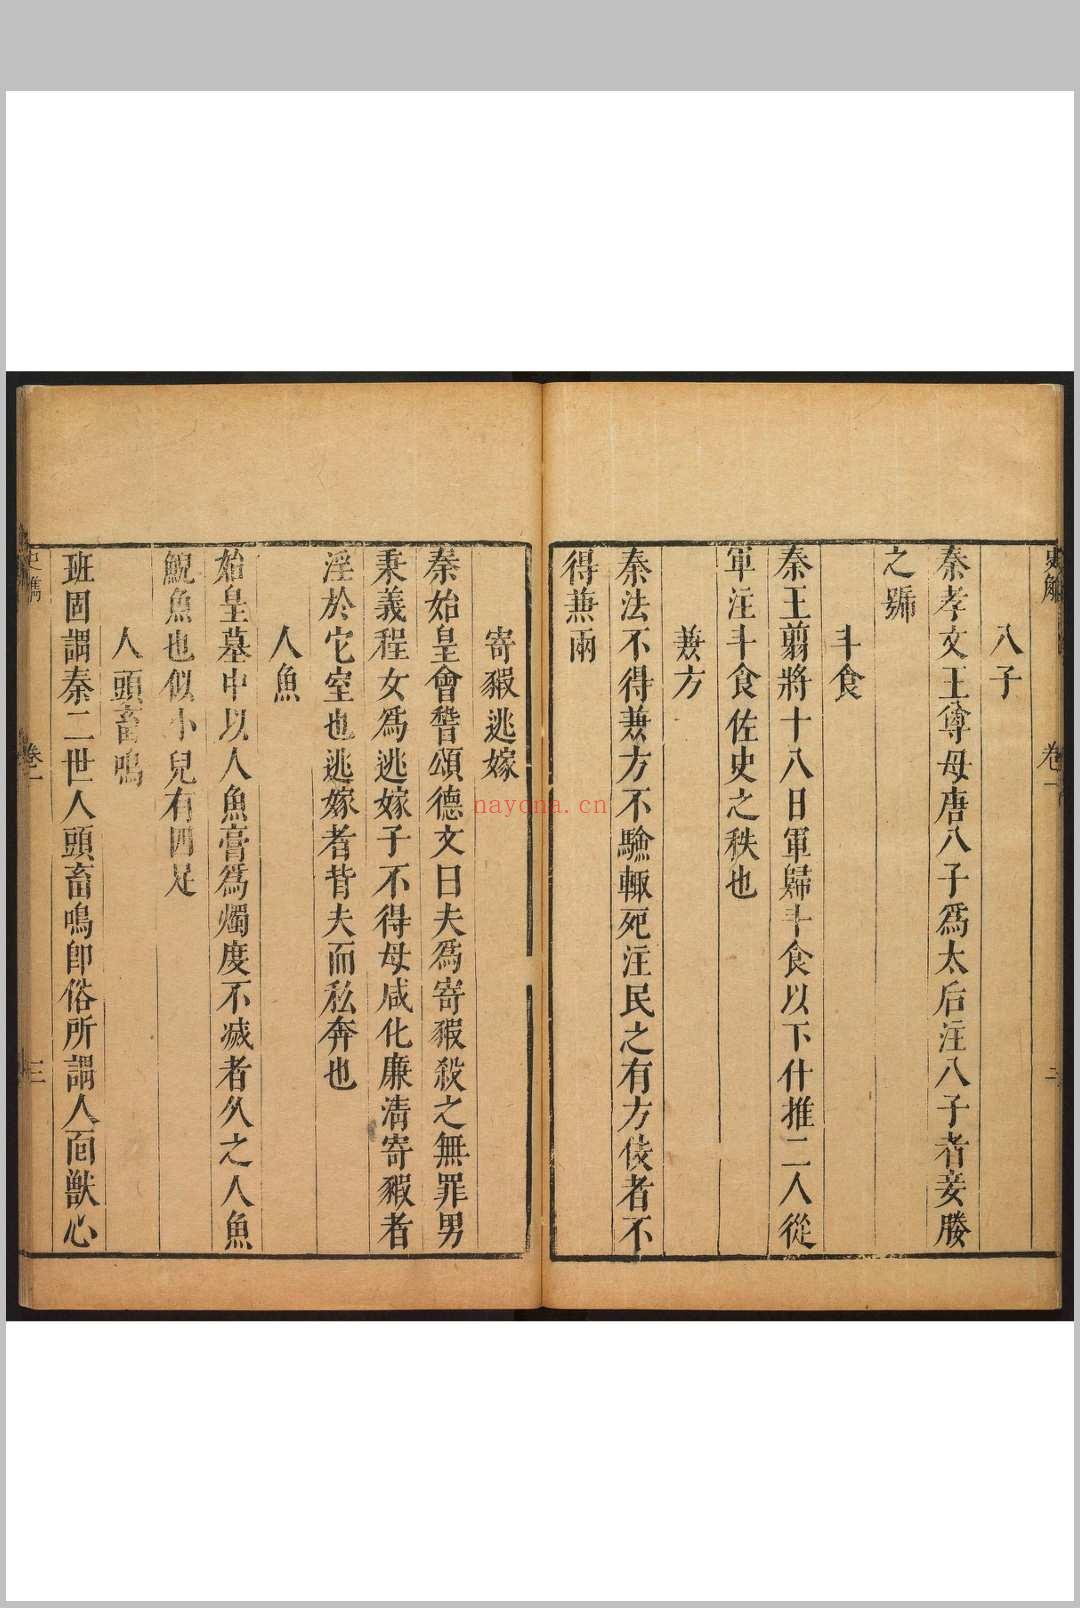 史雋
卷一
二
八子
秦孝文王尊母唐八子爲太后注八子者妾媵
之號
斗食
秦王翦將十八日軍歸斗食以下什推二人從
軍注斗食佐史之秩也
兼方
秦法不得兼方不驗輒死注民之有方伎者不
得兼兩
寄豭逃嫁
秦始皇會稽頌德文曰夫爲寄豭殺之無罪男
秉義程女爲逃嫁子不得母咸化廉清寄豭者
淫於它室也逃嫁者背夫而私奔也
人魚
始皇墓中以人魚膏爲燭度不滅者久之人魚
鯢魚也似小兒有四足
人頭畜鳴
班固謂秦二世人頭畜鳴卽俗所謂人面獸心
史雋
卷一
三
nayona.cn